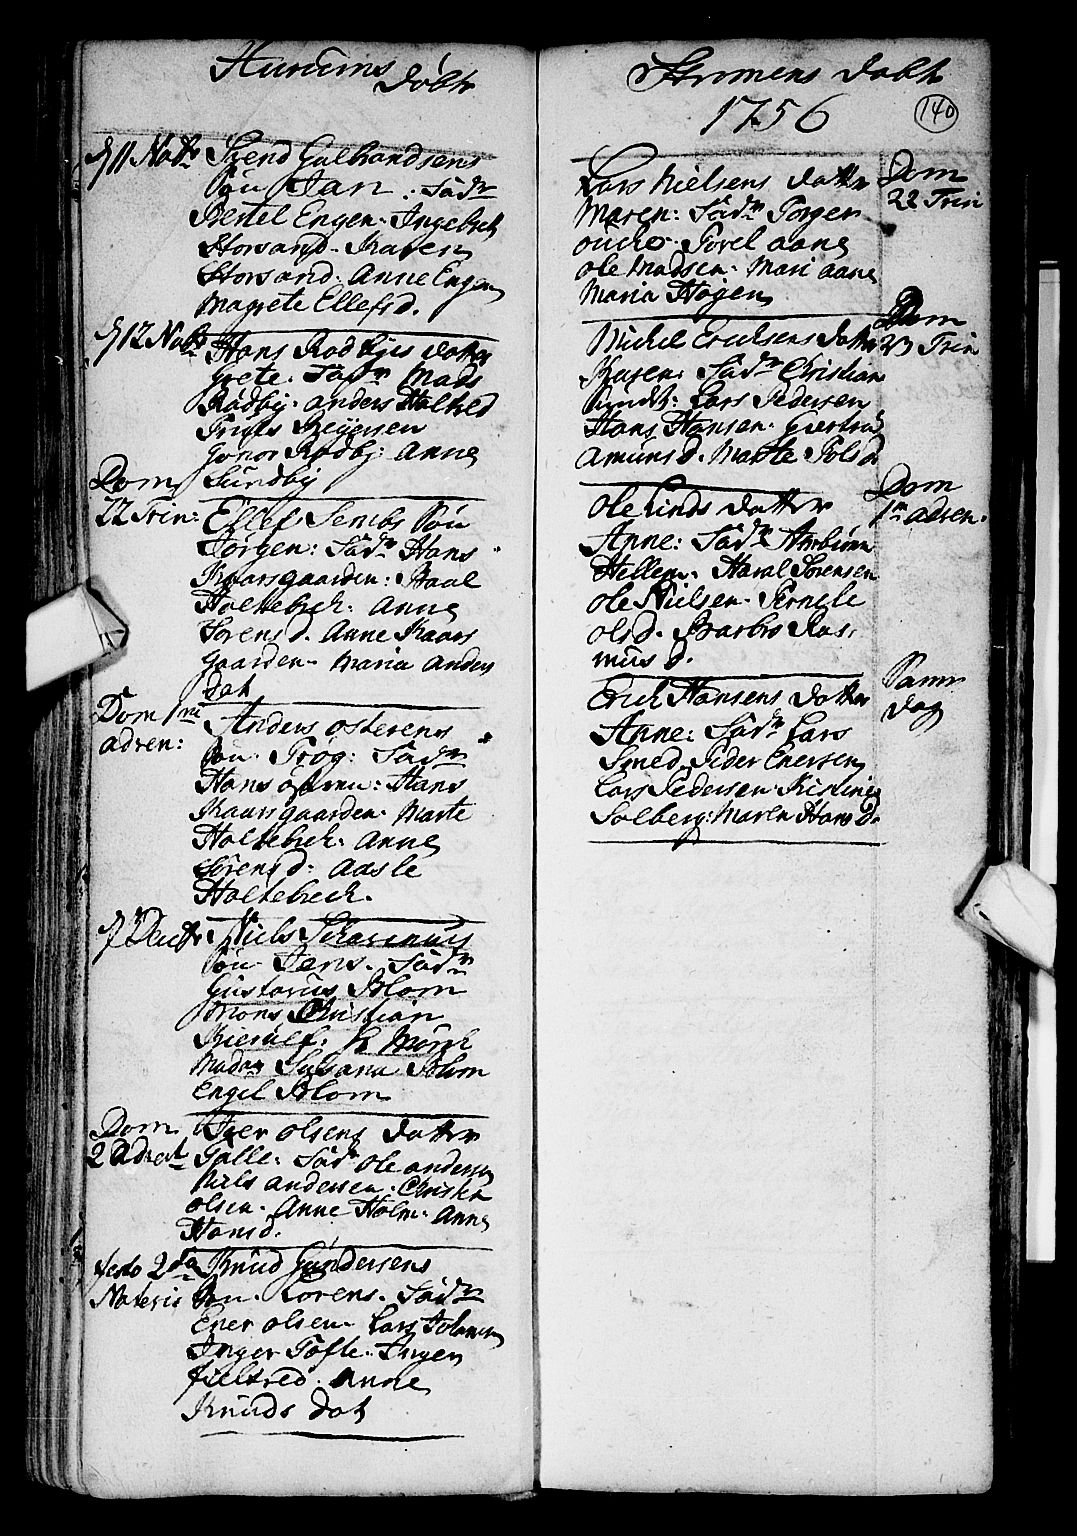 Hurums
døbt
d 11 Nov
Svend Gulbrandsens
Søn Jan. fad
Bertel Engen. Ingebret
Storsand. Karen
Storsand. Anne Engen
Magrete Ellefsd.
d 12 Nov
Hans Rødbyes datter
Grete. fad Mads
Rødby. anders Holtved
Truels Reyersen
Gonor Rødby. Anne
Sundby
Dom
22 Trin:
Ellef Sembs Søn
Jørgen: fad Hans
Kaarsgaarden: Paal
Holtebeck: Anne
Sørensd. Anne Kaars
gaarden. Maria Anders
dat
Dom 1mi
adven:
Anders østerens
Søn. Trog: fad
Hans østeren: Hans
Kaarsgaarden. Marte
Holtebech. Anne
Sørensd: Aasle
Holtebeck.
Niels
Søn. Jens. fad
Gustavus Blom
Mons Christian
Kierulf: Hr Mørch
Mada Susana Blom
Engel Blom
Dom
2 Advent
Iver olsens datter
Tølle: fad ole andersen
Niels andersen. Christen
olsen. Anne Holm. Anne
Hansd.
festo 2da
Nateris
Knud Gundersens
Søn. Lorens. fad
Ener olsen. Lars Johansen
Inger Tofte. Inger
fieltved. Anne
Knuds dat
Strømens døbt
1756
140
Lars Nielsens datter
Maren: fad Torger
Torel aane
ole Madsen. Mari aane
Maria Høyen
Dom
22 Trin
Michel Ericksens datter
Karen: fad Christian
Lars Pedersen
Hans Hansen. Giertrud
Amunsd. Marte Polsd
Dom
23 Trin
ole Linds datter
Anne: fad Anbiørn
Hellen. Haral Sørensen
ole Nielsen. Pernele
olsd. Barbro Ras-
musd.
Dom
1m adven.
Erich Hansens datter
Anne: fad Lars
Smed. Peder Enersen
Lars Pedersen. Kistine
Solberg: Maren Hans D.
dag